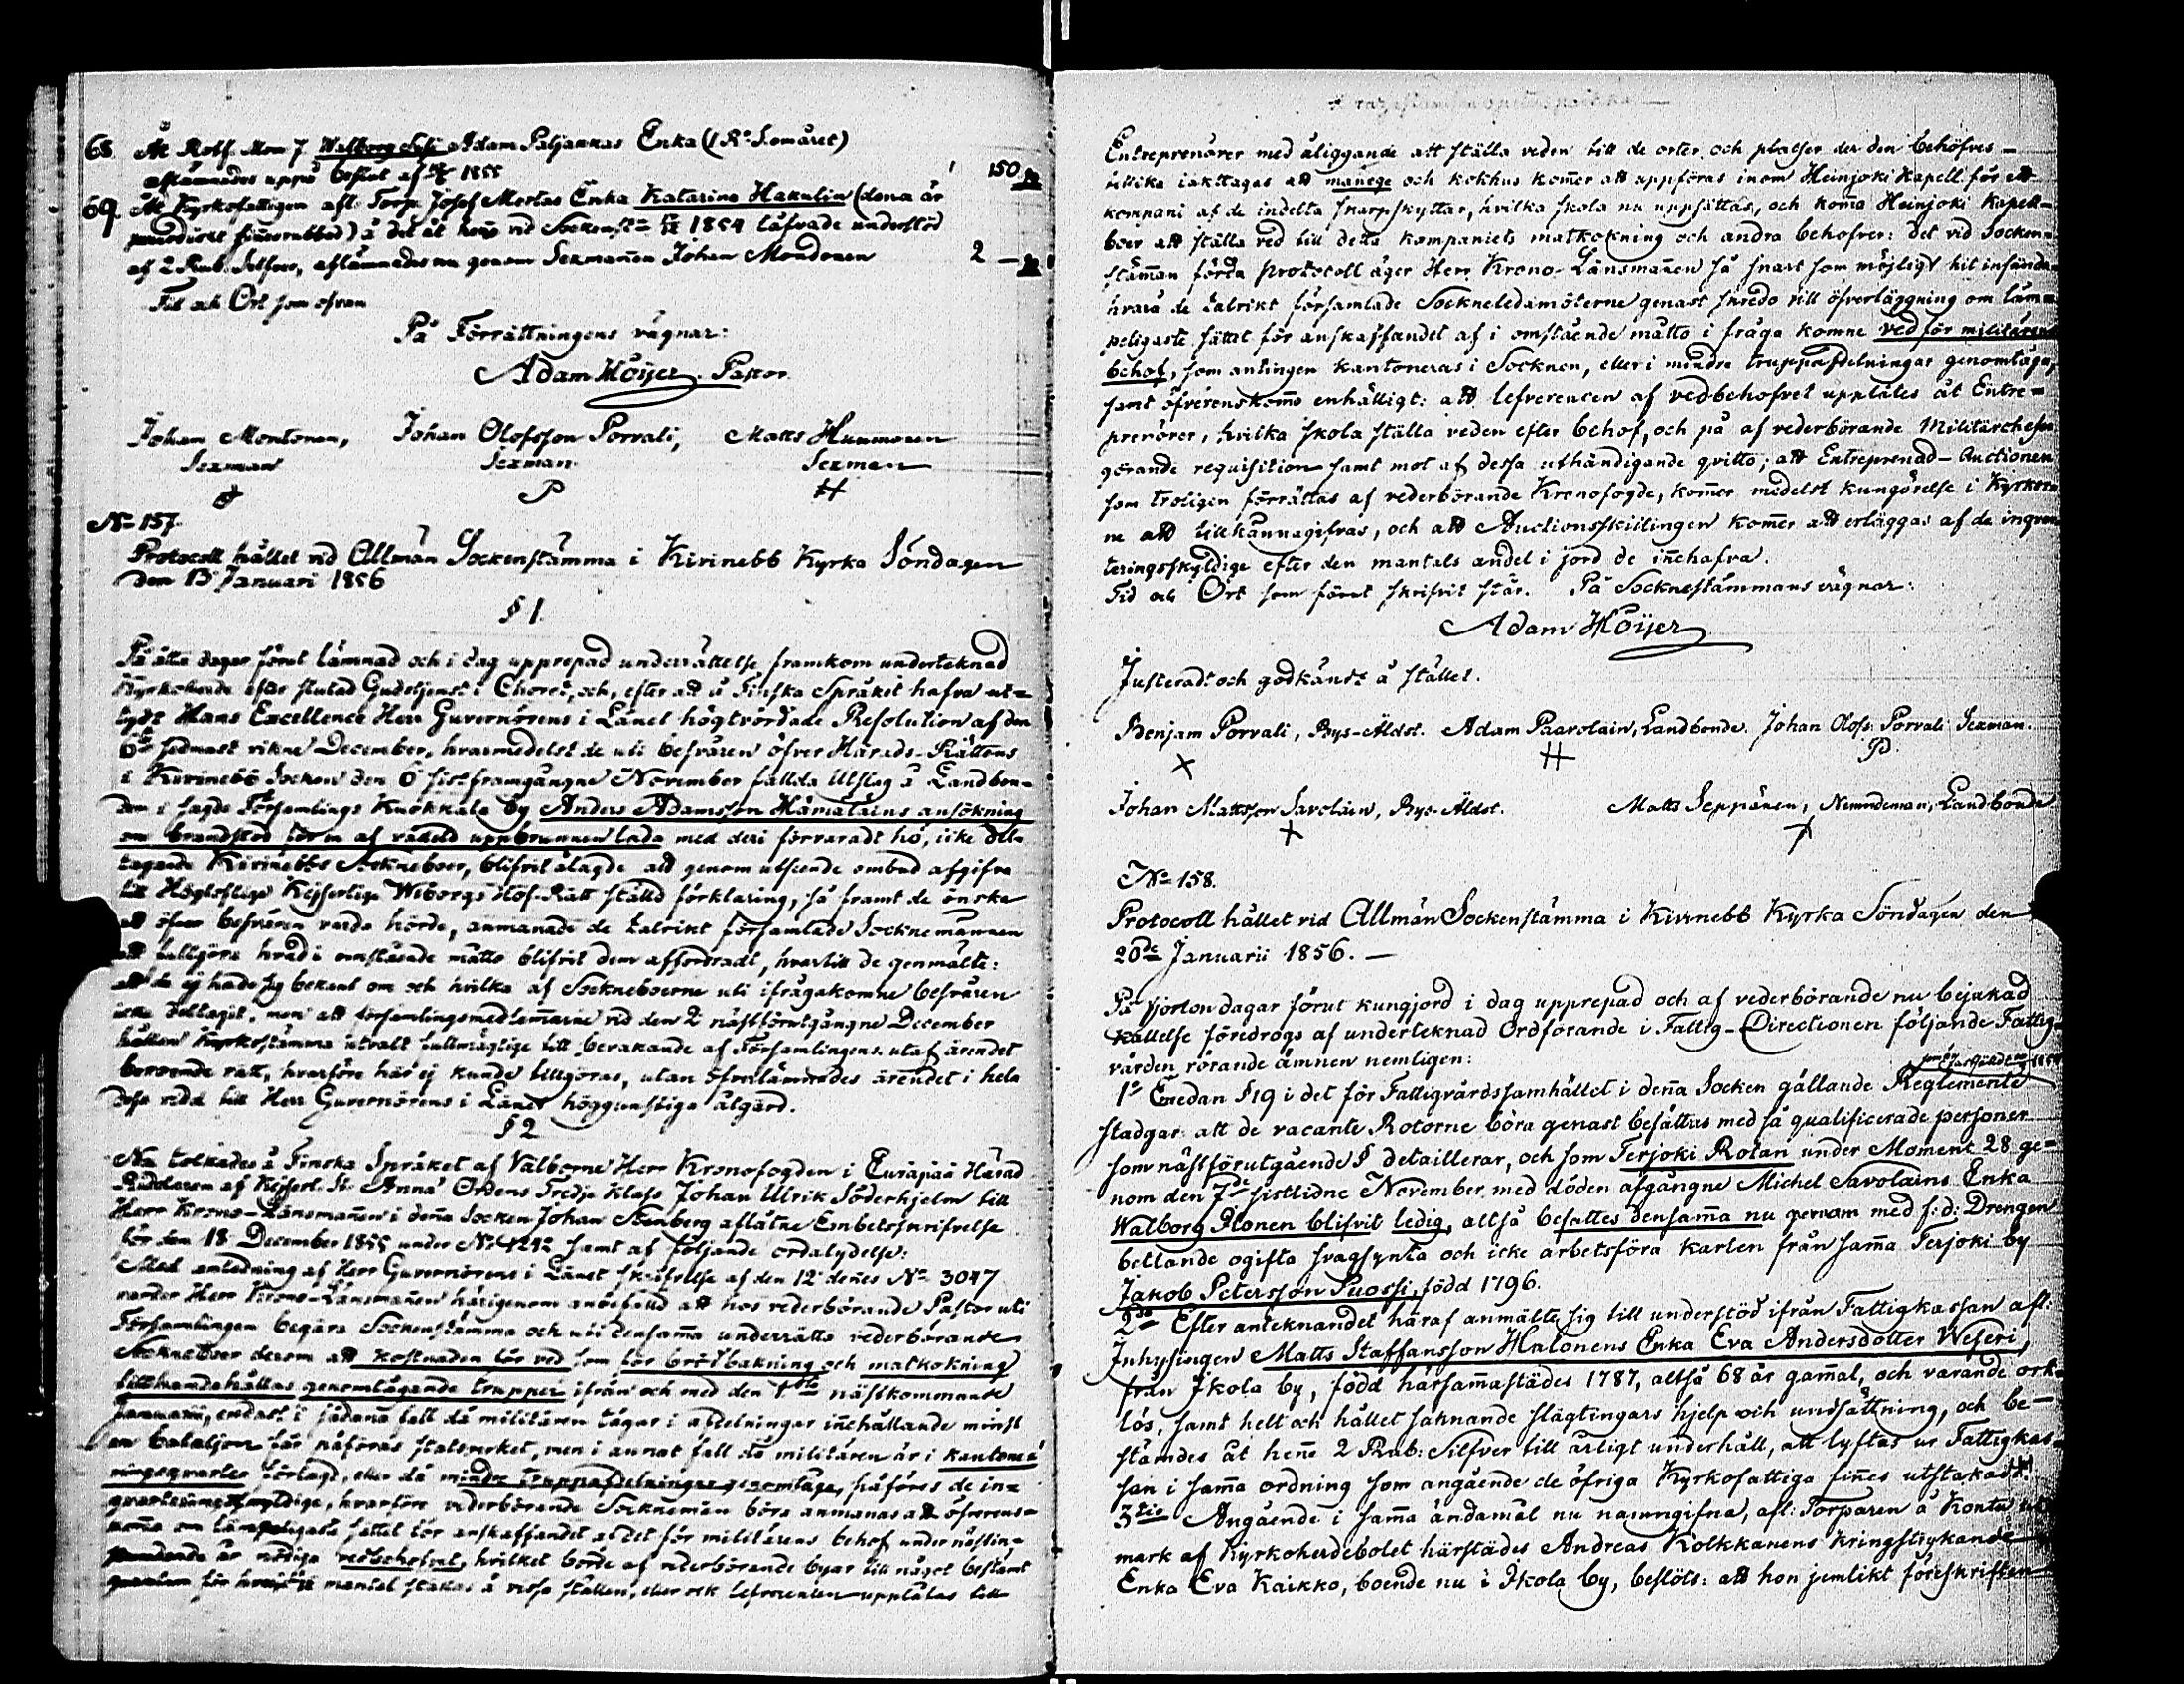 68. Åt Rotf. Mom 7 Walborg Adam Paljakkas Enka (1 R. S. om året)
aflämnades uppå beslut af 1855 1 150
69. Åt Kyrkofattigen afl. Torp. Josef Mertas Enka Katarina Hakulin (denna är
) å det åt henne vid Sockenst. 1854 låfvade understöd
af 2 Rub. Silfver, aflämnades nu genom Sexmannen Johan Mondonen 2 —
Tid och Ort som ofvan
På Förrättningens vägnar:
Adam Höijer. Pastor.
Johan Montonen, Johan Olofsson Porvali, Matts Hummonen
Sexman Sexman Sexman
P H
No 157.
Protocoll hållet vid Allmän Sockenstämma i Kivinebb Kyrka Söndagen
den 13 Januari 1856
§ 1.
På åtta dagar förut lämnad och i dag upprepad underrättelse framkom undertecknad
Kyrkoherde efter slutad Gudstjenst i Choret, och, efter att å Finska Språket hafva ut=
tydt Hans Excellence Herr Guvernörens i Länet högtvördade Resolution af den
6te sidmast vikne December, hvarmedelst de uti besvären öfver Härads-Rättens
i Kivinebb Socken den 6 sistframgångne November fällda Utslag å Landbon-
den i sagde Församlings Kuokkala by Anders Adamsson Hämäläins ansökning
om brandstod för en af vådeld uppbrunnen lada med deri förvaradt hö, icke del-
tagande Kivinebbs Sockneboer, blifvit ålagde att genom utseende ombud afgifva
till Höglofliga Kejserliga Wiborgs Hof-Rätt ställd förklaring, så framt de önska
att öfver besvären varda hörde, anmanade de talrikt församlade Socknemännen
att fullgöra hvad i omstående måtto blifvit dem affordradt, hvartill de genmälte:
att de ej hade sig bekant om och hvilka af Sockneboerne uti ifrågakomne besvären
icke deltagit, men att församlingsmedlemmarne vid den 2 nästförutgångne December
hållen Kyrkostämma utvalt fullmägtige till bevakande af Församlingens utaf ärendet
beroende rätt, hvarföre här ej kunde tillgöras, utan öfverlämnades ärendet i hela
dess vidd till Herr Guvernörens i Länet höggunstiga åtgärd.
§ 2
Nu tolkades å Finska Språket af Välborne Herr Kronofogden i Euräpää Härad
Riddaren af Kejserl. St. Annæ Ordens Tredje Klass Johan Ulrik Söderhjelm till
Herr Krono-Länsmannen i denna Socken Johan Stenberg aflåtne Embetsskrifvelse
för den 18 December 1855 under No 1242 samt af följande ordalydelse:
Med anledning af Herr Guvernörens i Länet skrifvelse af den 12 dennes No 3047
varder Herr Krono-Länsmannen härigenom anbefalld att hos vederbörande Pastor uti
Församlingen begära Sockenstämma och uti densamma underrätta vederbörande
Sockneboer derom att kostnaden för ved som för brödbakning och matkokning
tillhandahållas genomtågande trupper ifrån och med den 1ste nästkommande
Januarii, endast i sådana fall då militären tågar i afdelningar innehållande minst
en bataljon får påföras statsverket, men i annat fall då militären är i kantone-
ringsqvarter förlagd, eller då mindre truppafdelningar genomtåga, påföres de in=
qvarteringsskyldige, hvarföre vederbörande Socknemän böra anmanas att öfverens-
komma om lämpeligaste sättet för anskaffandet af det för militärens behof under nästin-
stundande år nödiga vedbehofvet, hvilket borde af vederbörande byar till något bestämt
qvantum för hvarje mantal stakas å vissa ställen, eller ock lefverenten upplåtas till
Entreprenörer med åliggande att ställa veden till de orter och platser der den behöfves —
hvilka iakttagas att manege och kokhus kommer att uppföras inom Heinjoki Kapell för ett
kompani af de indelta skarpskyttar, hvilka skola nu uppsättas, och komma Heinjoki Kapell-
boer att ställa ved till detta kompaniets matkokning och andra behofver: det vid Socken-
stämman förda protocoll äger Herr Krono-Länsmannen så snart som möjligt hit insända
hvarå de talrikt församlade Sockneledamöterne genast skredo till öfverläggning om läm=
peligaste sättet för anskaffandet af i omstående måtto i fråga komne ved för militärens
behof, som antingen kantoneras i Socknen, eller i mindre truppafdelningar genomtåga,
samt öfverenskommo enhälligt: att lefverencen af vedbehofvet upplåtes åt Entre=
prenörer, hvilka skola ställa veden efter behof, och på af vederbörande Militärchefer
görande requisition samt mot af dessa uthändigande qvitto; att Entreprenad-Auctionen
som troligen förrättas af vederbörande Kronofogde, kommer medelst kungörelse i Kyrkor-
ne att tillkännagifvas, och att Auctionsskillingen kommer att erläggas af de inqvar-
teringsskyldige efter den mantals andel i jord de innehafva.
Tid och Ort som förut skrifvit står. På Socknestämmans vägnar:
Adam Höijer
Justeradt och godkändt å stället.
Benjam Porvali, Bys-Äldst. Adam Paavolain, Landbonde. Johan Olofs. Porvali Sexman.
X H P
Johan Mattsson Savolain, Bys-Äldst. Matts Seppänen, Nämndeman, Landbonde
No 158.
Protocoll hållet vid Allmän Sockenstämma i Kivinebb Kyrka Söndagen den
20de Januarii 1856. —
På fjorton dagar förut kungjord i dag upprepad och af vederbörande nu bejakad
kallelse föredrogs af undertecknad Ordförande i Fattig-Directionen följande Fattig-
vården rörande ämnen nemligen:
1o Emedan § 19 i det för Fattigvårdssamhället i denna Socken gällande Reglemente 1854
stadgar: att de vacante Rotorne böra genast besättas med så qualificerade personer
som nästförutgående § detaillerar, och som Terjoki Rotan under Moment 28 ge=
nom den 7de sistlidne November med döden afgångne Michel Savolains Enka
Walborg Ilonen blifvit ledig, alltså besattes densamma nu genom med f:d: Drengen
beltande ogifta svagsynta och icke arbetsföra karlen från samma Terjoki by
Jakob Petersson Puossi, född 1796.
2do Efter antecknandet häraf anmälte sig till understöd ifrån Fattigkassan afl:
Inhysingen Matts Staffansson Halonens Enka Eva Andersdotter Weseri,
från Ikola by, född härsammastädes 1787, altså 68 år gammal, och varande ork-
lös, samt helt och hållet saknande slägtingars hjelp och undsättning, och be-
stämdes åt henne 2 Rub: Silfver till årligt underhåll, att lyftas ur Fattigkas-
san i samma ordning som angående de öfriga Kyrkofattiga finnes utstakadt.
3tio Angående i samma ändamål nu namngifna, afl: Torparen å Kontu ut-
mark af Kyrkoherdebolet härstädes Andreas Kolkkanens kringstrykande
Enka Eva Kaikko, boende nu i Ikola by, beslöts: att hon jemlikt föreskriften